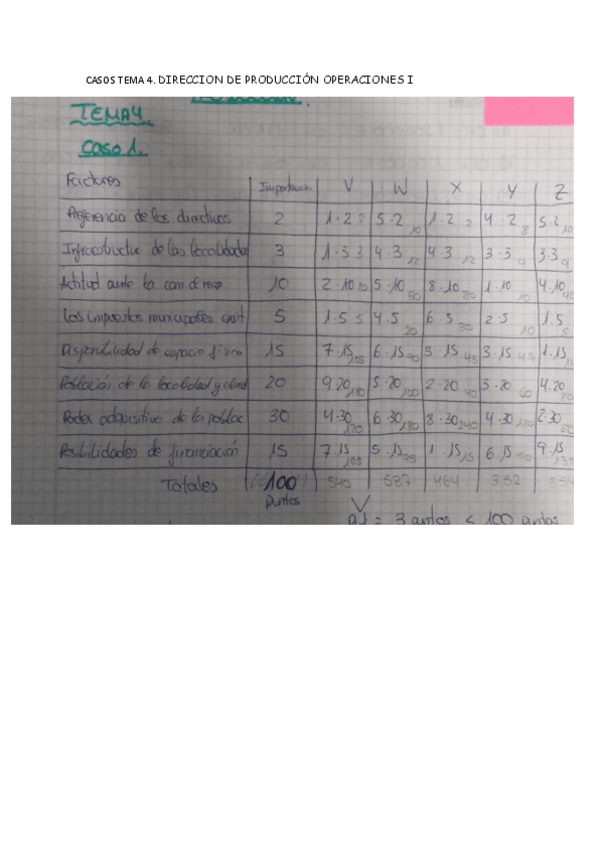 CASOS TEMA 4. DIRECCION DE PRODUCCIÓN OPERACIONES I
TEMA 4.
Caso 1.
Factores Importancia V W X Y Z
Preferencia de los directivos 2 1·2 2 5·2 10 1·2 2 4·2 8 5·2 10
Infraestructur de las localidades 3 1·3 3 4·3 12 4·3 12 3·3 9 3·3 9
Actitud ante la 10 2·10 20 5·10 50 8·10 80 1·10 10 4·10 40
Los impuestos municipales 5 1·5 5 4·5 20 6·5 30 2·5 10 1·5 5
Disponibilidad de espacio físico 15 7·15 105 6·15 90 3·15 45 3·15 45 1·15
Población de la localidad y 20 9·20 180 5·20 100 2·20 40 3·20 60 4·20
Poder adquisitivo de la poblac 30 4·30 120 6·30 180 8·30 240 4·30 120 2·30
Posibilidades de financiación 15 7·15 105 5·15 75 1·15 15 6·15 90 9·15
Totales 100 540 537 464 352
puntos
a) = 3 puntos < 100 puntos